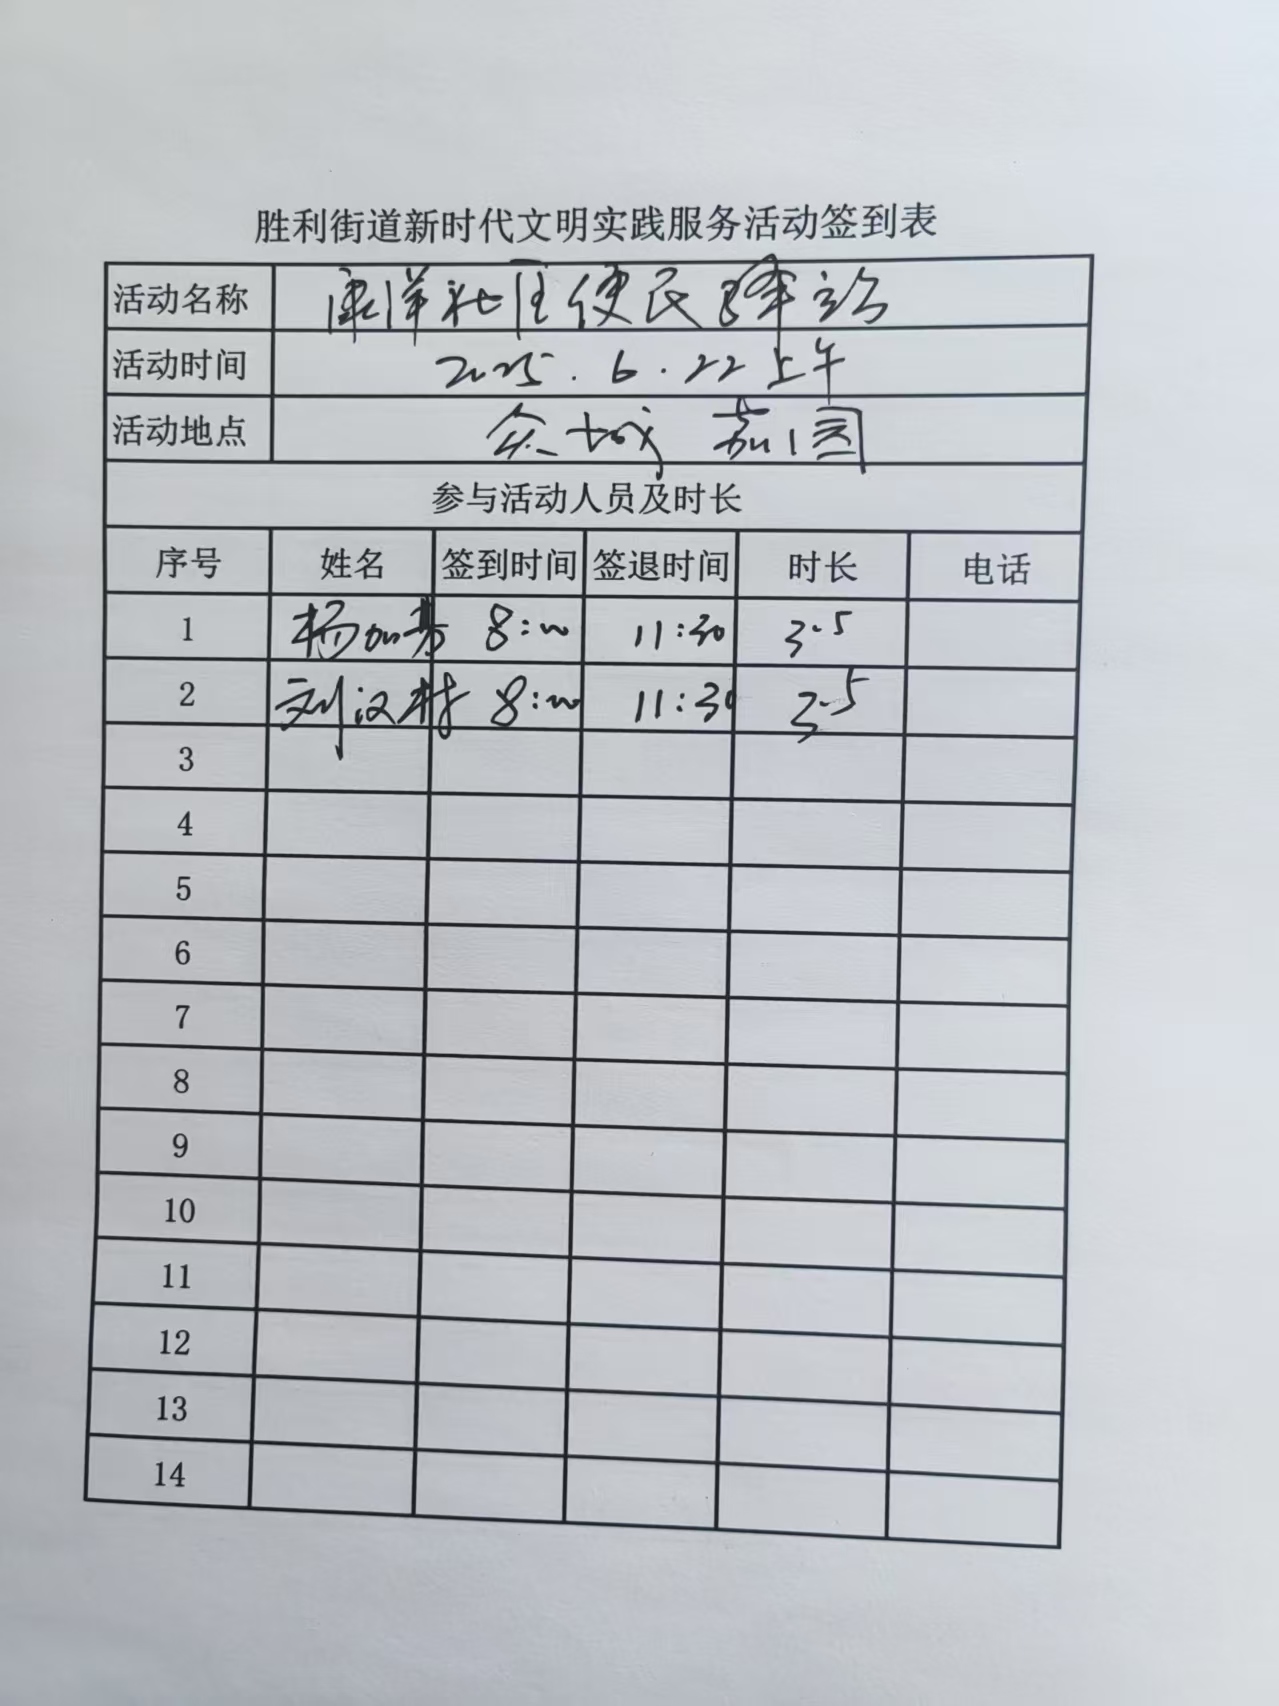 胜利街道新时代文明实践服务活动签到表
活动名称 康洋社区便民驿站
活动时间 2025.6.22上午
活动地点 众城嘉园
参与活动人员及时长
序号 姓名 签到时间 签退时间 时长 电话
1 杨加芳 8:00 11:30 3.5
2 刘汉村 8:00 11:30 3.5
3
4
5
6
7
8
9
10
11
12
13
14